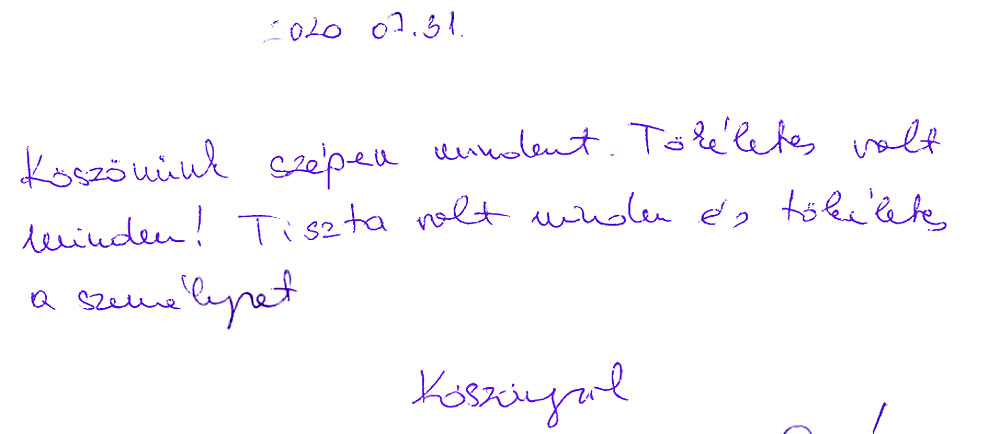 2020 07.31.
Köszönünk szépen mindent. Tökéletes volt
minden! Tiszta volt minden és tökéletes
a személyzet
Köszönjük